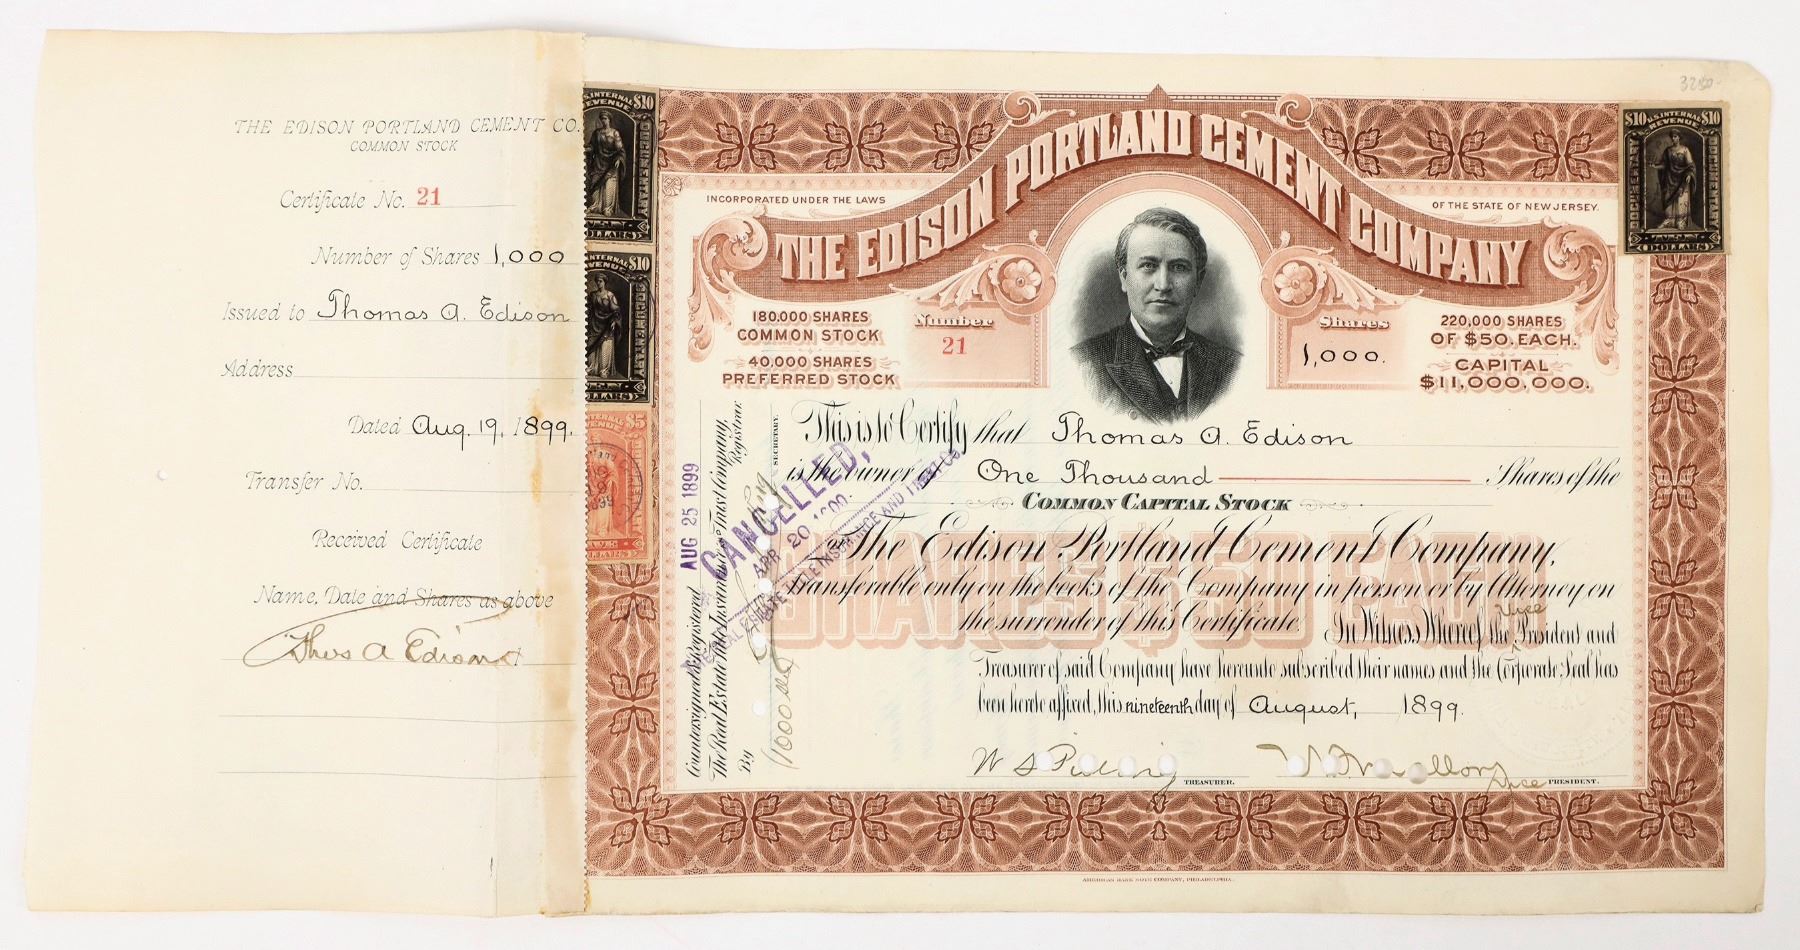 THE EDISON PORTLAND CEMENT CO.
COMMON STOCK
Certificate No. 21
Number of Shares 1,000
Issued to Thomas A. Edison
Address
Dated Aug. 19, 1899.
Transfer No.
Received Certificate
Name, Date and Shares as above
Thos A Edison
3250-
$10 U.S. INTERNAL REVENUE $10
DOCUMENTARY
DOCUMENTARY
DOLLARS
INTERNAL $10
REVENUE
DOCUMENTARY
DOLLARS
INTERNAL $10
REVENUE
DOCUMENTARY
DOLLARS
$5
THE EDISON PORTLAND CEMENT COMPANY
INCORPORATED UNDER THE LAWS
OF THE STATE OF NEW JERSEY.
180,000 SHARES
COMMON STOCK
40,000 SHARES
PREFERRED STOCK
Number
21
Shares
1,000.
220,000 SHARES
OF $50. EACH.
CAPITAL
$11,000,000.
This is to Certify that Thomas A. Edison
is the owner of One Thousand Shares of the
COMMON CAPITAL STOCK
of The Edison Portland Cement Company,
transferable only on the books of the Company in person or by Attorney on
the surrender of this Certificate. In Witness Whereof the Vice President and
Treasurer of said Company have hereunto subscribed their names and the Corporate Seal has
been hereto affixed, this nineteenth day of August, 1899.
SHARES $50 EACH
W S Pilling TREASURER.
W. S. Mallory Vice PRESIDENT.
Countersigned & Registered AUG 25 1899
The Real Estate Title Insurance and Trust Company,
Registrar.
By
SECRETARY.
1000 shs
CANCELLED,
APR 20 1900.
REAL ESTATE TITLE INSURANCE AND TRUST CO.
AMERICAN BANK NOTE COMPANY, PHILADELPHIA.